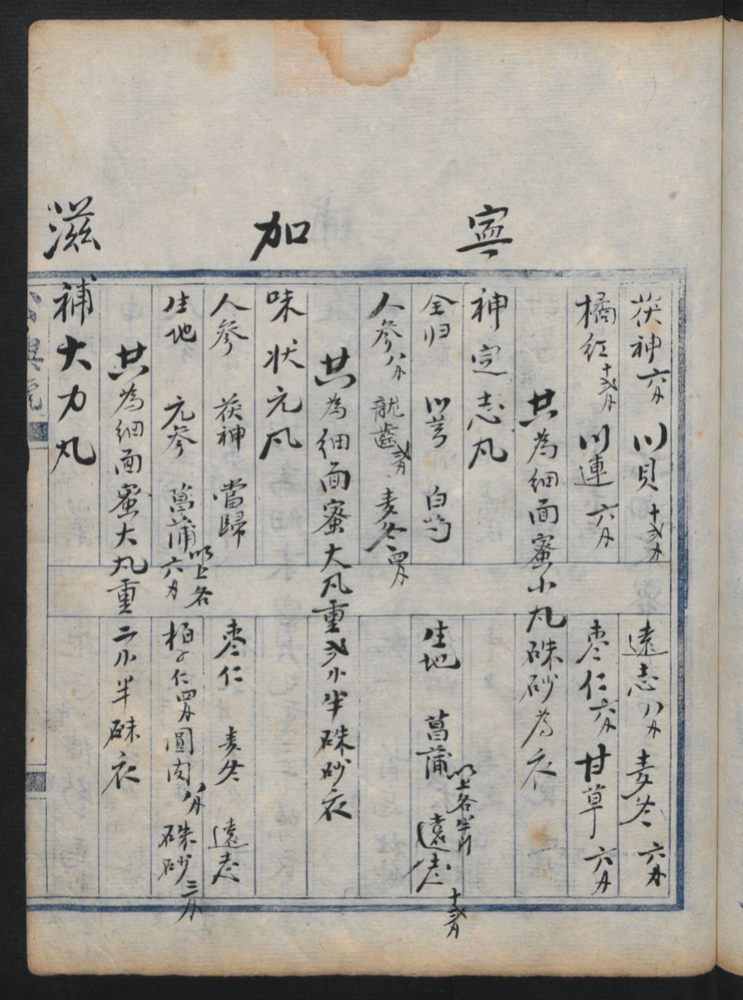 茯神六分 川貝十弍分 遠志八分 麦冬六分
橘紅十弍分 川連六分 枣仁六分 甘草六分
共為細面蜜小丸硃砂為衣
寧神定志丸
全归 川芎 白芍 生地 菖蒲以上各半斤 遠志十弍分
人參八分 龍齒弍分 麦冬四分
共為細面蜜大丸重弍小半硃砂衣
加味状元丸
人參 茯神 當歸 枣仁 麦冬 遠志
生地 元參 菖蒲以上各六分 柏子仁四分 圓肉八分 硃砂三分
共為細面蜜大丸重二小半硃衣
滋補大力丸